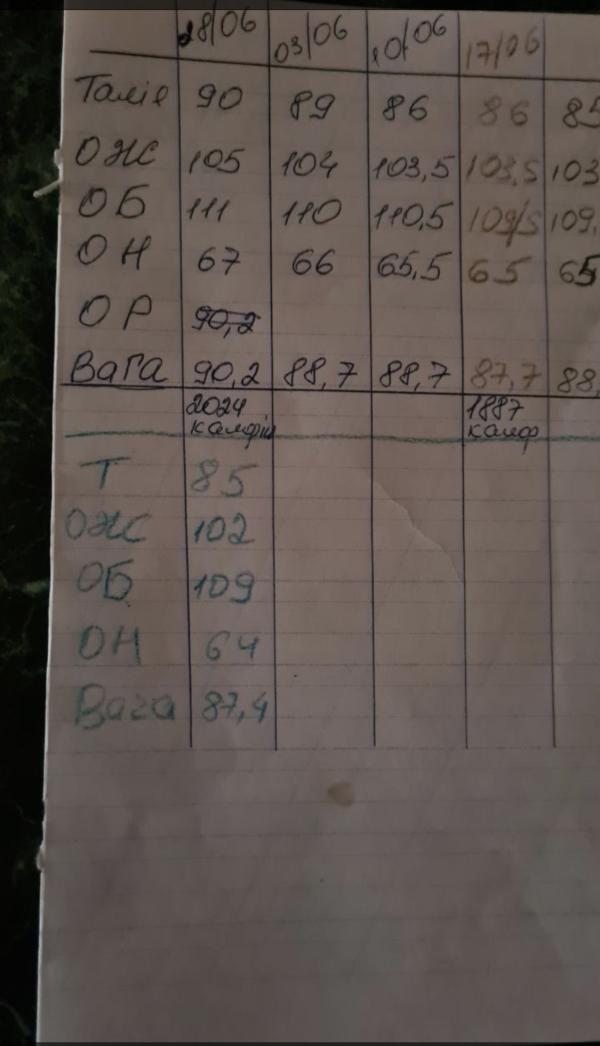 28/06 03/06 10/06 17/06
Талія 90 89 86 86 85
ОЖС 105 104 103,5 103,5 103
ОБ 111 110 110,5 109,5 109,
ОН 67 66 65,5 65 65
ОР 90,2
Вага 90,2 88,7 88,7 87,7 88,
2024 1887
калорій калор
Т 85
ОЖС 102
ОБ 109
ОН 64
Вага 87,4